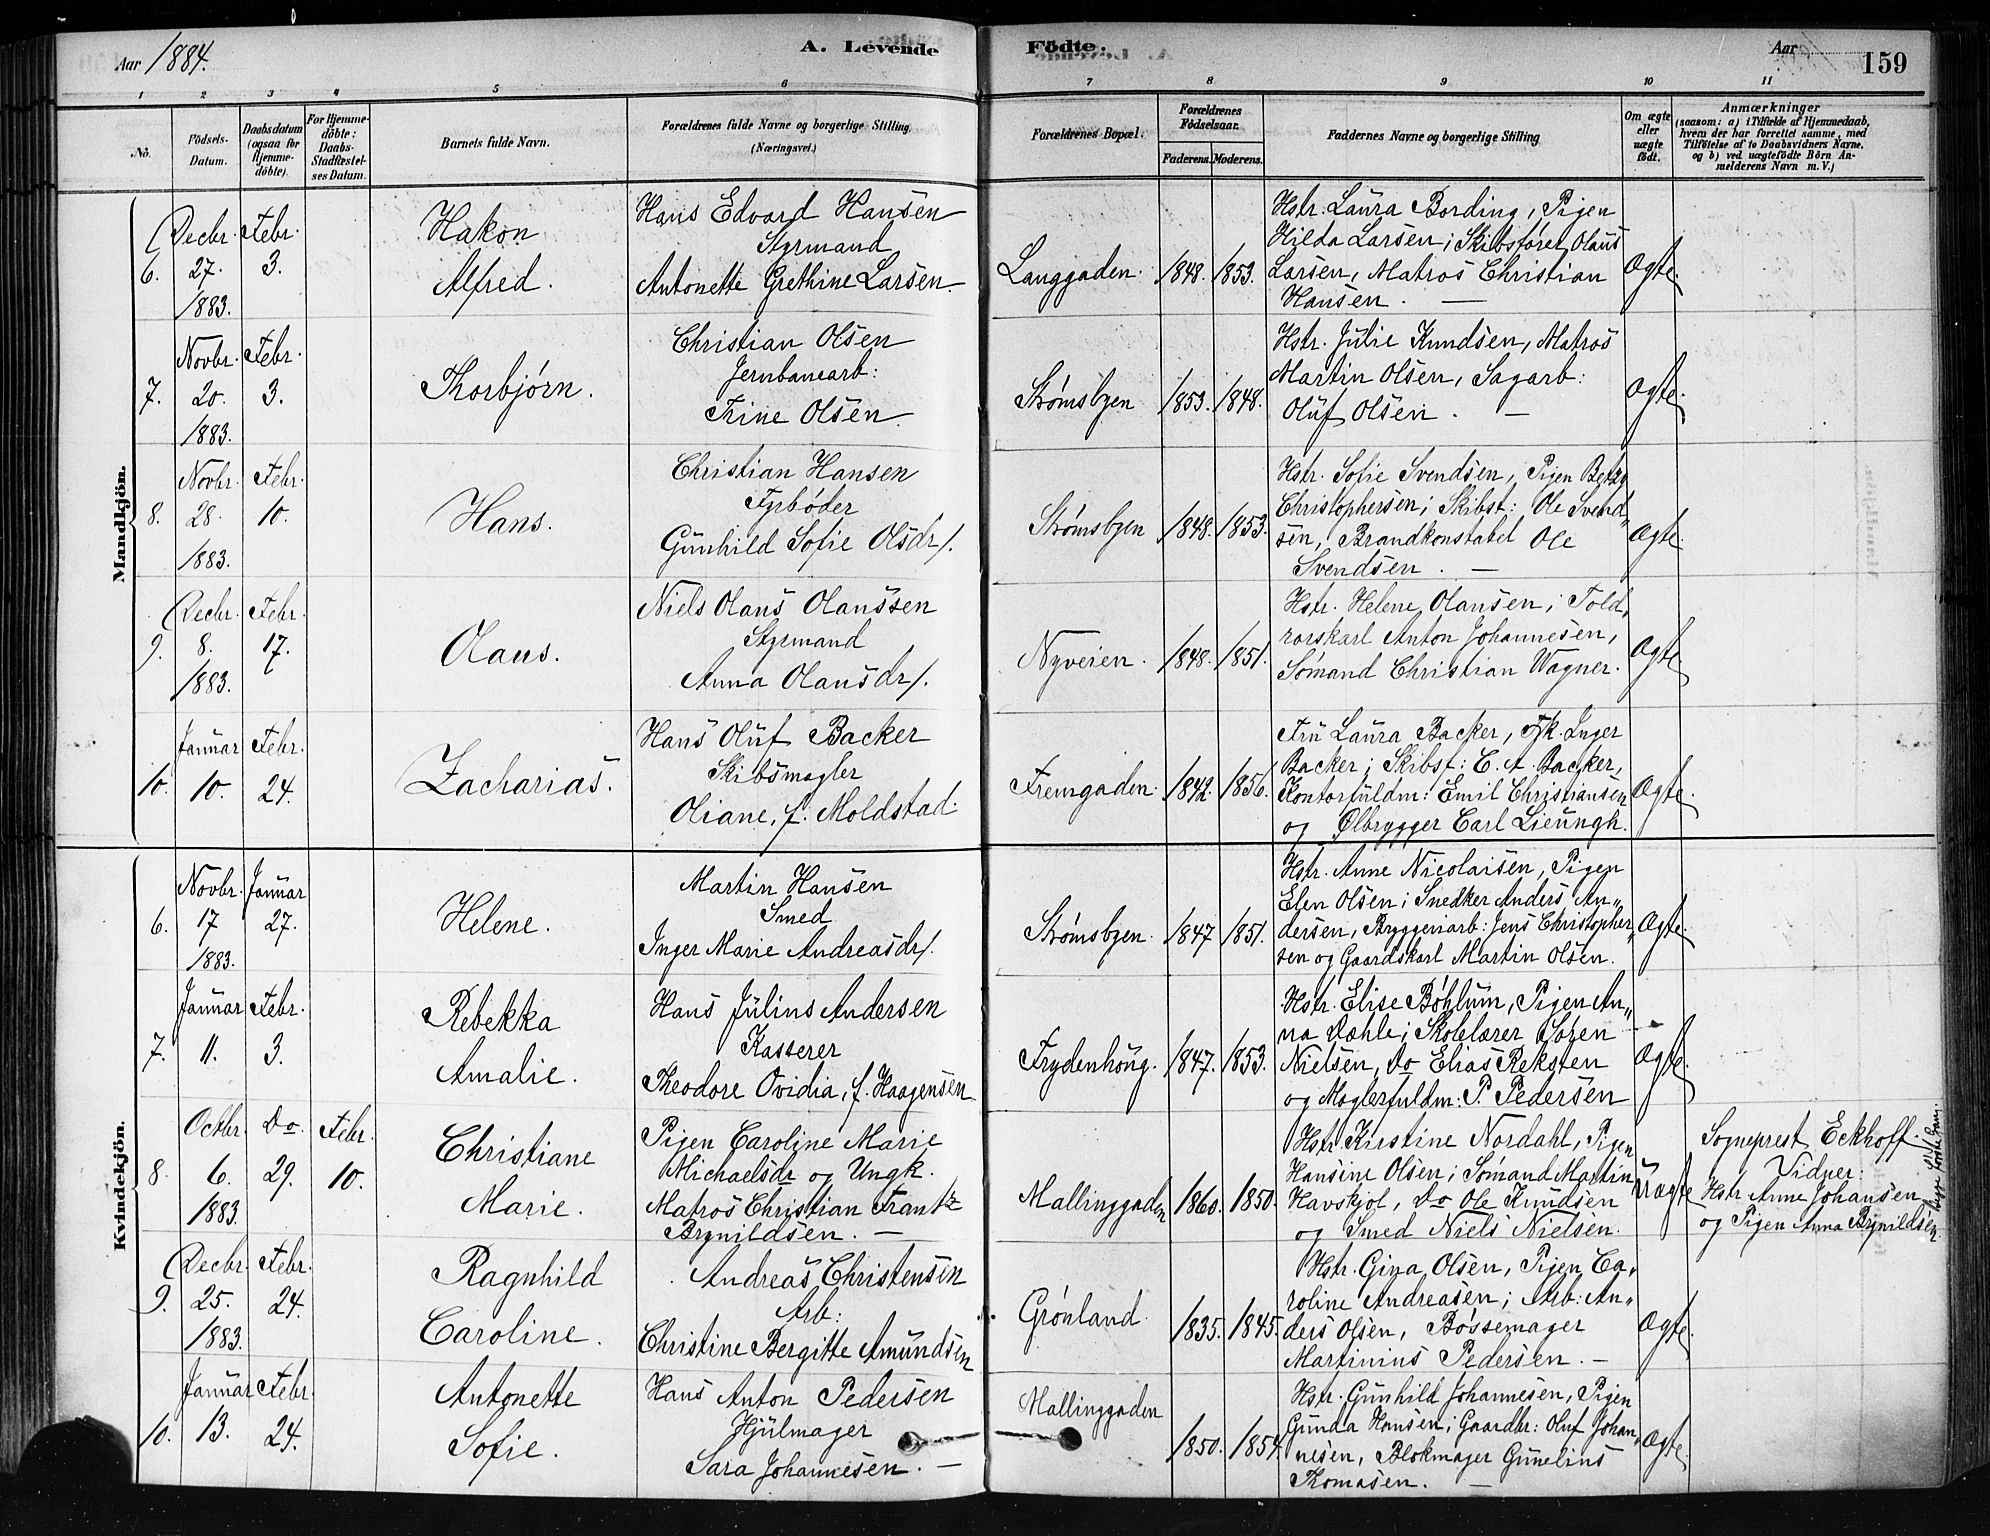 Aar 1884.
A. Levende
Födte.
Aar
159
1 2 3 4 5 6 7 8 9 10 11
No.
Födsels-Datum.
Daabsdatum (ogsaa for Hjemme-döbte).
For Hjemme-döbte: Daabs-Stadfæstel-ses Datum.
Barnets fulde Navn.
Forældrenes fulde Navne og borgerlige Stilling.
(Næringsvei.)
Forældrenes Bopæl.
Forældrenes Födselsaar.
Faderens. Moderens.
Faddernes Navne og borgerlige Stilling
Om ægte eller uægte födt.
Anmærkninger
(saasom: a) i Tilfælde af Hjemmedaab,
hvem der har forrettet samme, med
Tilföielse af to Daabsvidners Navne,
og b) ved uægtefödte Börn An-
melderens Navn m. V.)
Mandkjön.
6.
Decbr. 27. 1883.
Febr. 3.
Hakon
Alfred.
Hans Edvard Hansen
Styrmand
Antonette Grethine Larsen.
Langgaden.
1848. 1853.
Hstr. Laura Bording, Pigen
Hilda Larsen; Skibsfører Olaus
Larsen, Matros Christian
Hansen. —
Ægte.
7.
Novbr. 20. 1883.
Febr. 3.
Thorbjørn.
Christian Olsen
Jernbanearb:
Trine Olsen.
Strømsbyen
1853. 1848.
Hstr. Julie Knudsen, Matros
Martin Olsen, Sagarb:
Oluf Olsen. —
Ægte.
8.
Novbr. 28. 1883.
Febr. 10.
Hans.
Christian Hansen
Fyrbøder
Gunhild Sofie Olsdr/.
Strømsbyen
1848. 1853.
Hstr. Sofie Svendsen, Pigen Betzy
Christophersen; Skibst: Ole Svend„
sen, Brandkonstabel Ole
Svendsen. —
Ægte.
9.
Decbr. 8. 1883.
Febr. 17.
Olaus.
Niels Olaus Olaussen
Styrmand
Anna Olausdr/.
Nyveien.
1848. 1851.
Hstr. Helene Olausen; Told„
rorskarl Anton Johannesen,
Sømand Christian Wagner.
Ægte.
10.
Januar 10.
Febr. 24.
Zacharias.
Hans Oluf Backer
Skibsmægler
Oliane, f. Moldstad.
Fremgaden.
1842. 1856.
Fru Laura Backer, Frk. Inger
Backer; Skibsf: C. A. Backer,
Kontorfuldm: Emil Christiansen
og Ølbrygger Carl Lieungh.
Ægte.
Kvindekjön.
6.
Novbr. 17 1883.
Januar 27.
Helene.
Martin Hansen
Smed
Inger Marie Andreasdr/.
Strømsbyen.
1847 1851.
Hstr. Anne Nicolaisen, Pigen
Elen Olsen; Snedker Anders An„
dersen, Bryggeriarb: Jens Christopher„
sen og Gaardskarl Martin Olsen.
Ægte.
7.
Januar 11.
Febr. 3.
Rebekka
Amalie.
Hans Julius Andersen
Kasserer
Theodore Ovidia, f. Haagensen
Frydenhöug.
1847. 1853.
Hstr. Elise Bøhlum, Pigen An„
na Dæhle; Skolelærer Søren
Nielsen, Do Elias Reksten
og Mæglerfuldm: P. Pedersen
Ægte.
8.
Octbr. 6. 1883.
Do 29.
Febr. 10.
Christiane
Marie.
Pigen Caroline Marie
Michaelsdr og Ungk.
Matros Christian Frantz
Brynildsen. —
Mallinggaden
1860. 1850.
Hstr. Kirstine Nordahl, Pigen
Hansine Olsen; Sømand Martin
Havskjol, Do Ole Knudsen
og Smed Niels Nielsen.
Uægte
Sogneprest Eckhoff.
Vidner:
Hstr Anne Johansen
og Pigen Anna Brynildsen.
9.
Decbr. 25. 1883.
Febr. 24.
Ragnhild
Caroline.
Andreas Christensen
Arb:
Christine Bergitte Amundsen
Grønland.
1835. 1845.
Hstr. Gina Olsen, Pigen Ca„
roline Andreasen; Arb: An„
ders Olsen, Bøssemager
Martinius Pedersen. —
Ægte.
10.
Januar 13.
Febr. 24.
Antonette
Sofie.
Hans Anton Pedersen
Hjulmager
Sara Johannesen. —
Mallinggaden
1850. 1854.
Hstr. Gunhild Johannesen, Pigen
Gunda Hansen; Gaardbr: Oluf Johan„
nesen, Blokmager Gunelius
Thomasen. —
Ægte.